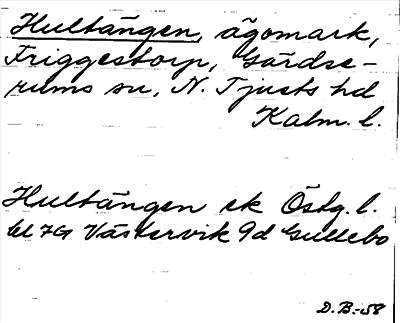 Hultängen, ägomark,
Friggestorp, Gärdse-
rums sn, N. Tjusts hd
Kalm. l.
Hultängen ek Östg. l.
bl 7G Västervik 9d Gullebo
D.B.-58